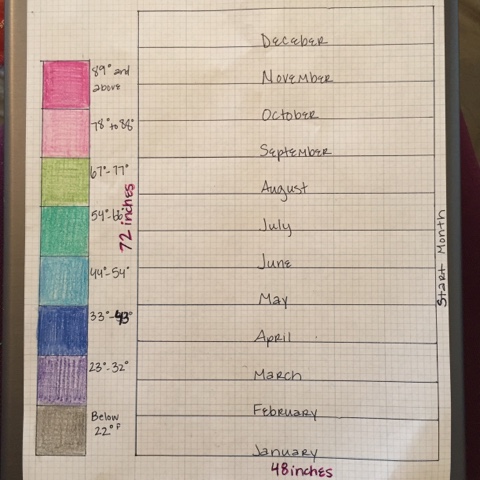 89° and
above
78° to 88°
67°-77°
54°-66°
44°-54°
33°-43°
23°-32°
Below
22°F
72 inches
DeceBer
November
October
September
August
July
June
May
April
March
February
January
48 inches
Start Month